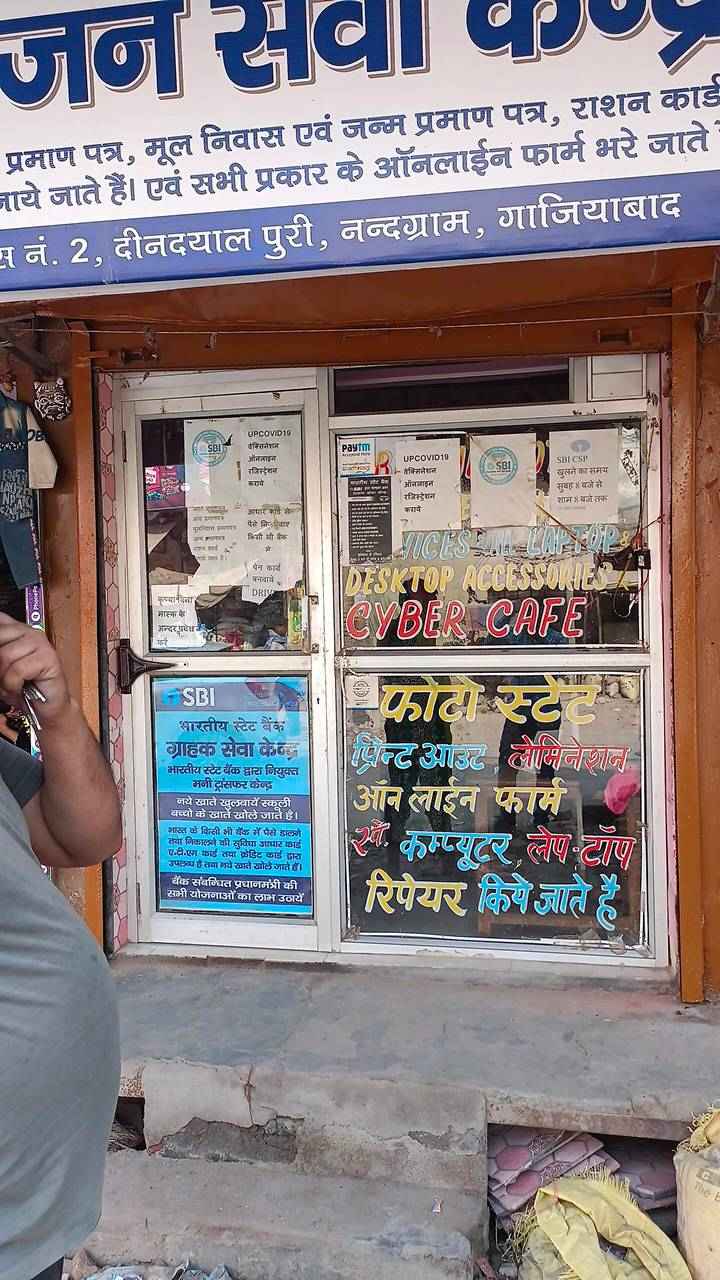 जन सेवा केन्द्र
प्रमाण पत्र, मूल निवास एवं जन्म प्रमाण पत्र, राशन कार्ड
जाये जाते हैं। एवं सभी प्रकार के ऑनलाईन फार्म भरे जाते
नं. 2, दीनदयाल पुरी, नन्दग्राम, गाजियाबाद
SBI
UPCOVID19
वेक्सिनेशन
ऑनलाइन
रजिस्ट्रेशन
कराये
आधार कार्ड से
पैसे
किसी भी बैंक
से
पेन कार्ड
बनवाये
DRIV
कृप्या बिना
मास्क के
अन्दर प्रवेश
करें
paytm
Accepted Here
UPCOVID19
वेक्सिनेशन
ऑनलाइन
रजिस्ट्रेशन
कराये
SBI
SBI CSP
खुलने का समय
सुबह 8 बजे से
शाम 8 बजे तक
VICES LAPTOP &
DESKTOP ACCESSORIES
CYBER CAFE
SBI
भारतीय स्टेट बैंक
ग्राहक सेवा केन्द्र
भारतीय स्टेट बैंक द्वारा नियुक्त
मनी ट्रांसफर केन्द्र
नये खाते खुलवायें स्कूली
बच्चो के खाते खोले जाते है।
भारत के किसी भी बैंक में पैसे डालने
तथा निकालने की सुविधा आधार कार्ड
ए.टी.एम कार्ड तथा क्रेडिट कार्ड द्वारा
उपलब्ध है तथा नये खाते खोले जाते हैं।
बैंक संबन्धित प्रधानमंत्री की
सभी योजनाओं का लाभ उठायें
फोटो स्टेट
प्रिन्ट आउट लेमिनेशन
ऑन लाईन फार्म
एवं कम्प्यूटर, लेप-टॉप
रिपेयर किये जाते है
PhonePe